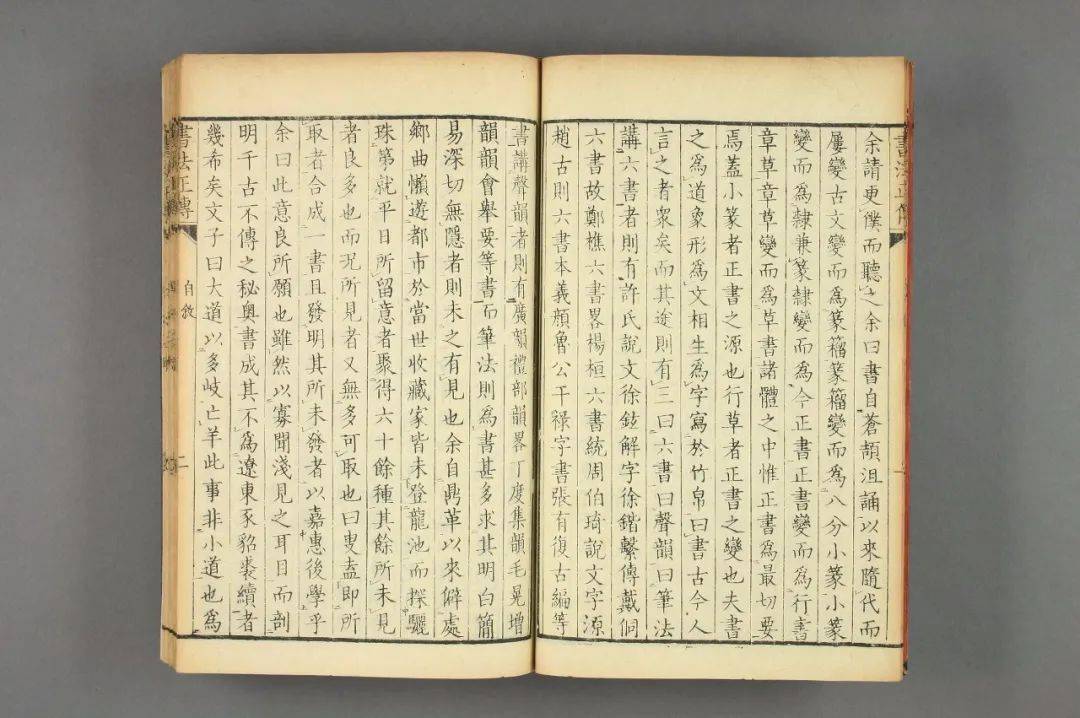 余請更僕而聽之余曰書自蒼頡沮誦以來隨代而
屢變古文變而為篆籀篆籀變而為八分小篆小篆
變而為隸兼篆隸變而為今正書正書變而為行書
章草章草變而為草書諸體之中惟正書為最切要
焉蓋小篆者正書之源也行草者正書之變也夫書
之為道象形為文相生為字寫於竹帛曰書古今人
言之者衆矣而其途則有三曰六書曰聲韻曰筆法
講六書者則有許氏說文徐鉉解字徐鍇繫傳戴侗
六書故鄭樵六書畧楊桓六書統周伯琦說文字源
趙古則六書本義顏魯公干祿字書張有復古編等
書法正傳
書講聲韻者則有廣韻禮部韻畧丁度集韻毛晃增
韻韻會舉要等書而筆法則為書甚多求其明白簡
易深切無隱者則未之有見也余自鼎革以來僻處
鄉曲懶遊都市於當世收藏家皆未登龍池而探驪
珠第就平日所留意者聚得六十餘種其餘所未見
者良多也而況所見者又無多可取也曰叟盍即所
取者合成一書且發明其所未發者以嘉惠後學乎
余曰此意良所願也雖然以寡聞淺見之耳目而剖
明千古不傳之秘奧書成其不為遼東豕貂裘續者
幾希矣文子曰大道以多岐亡羊此事非小道也為
書法正傳
自敘
二